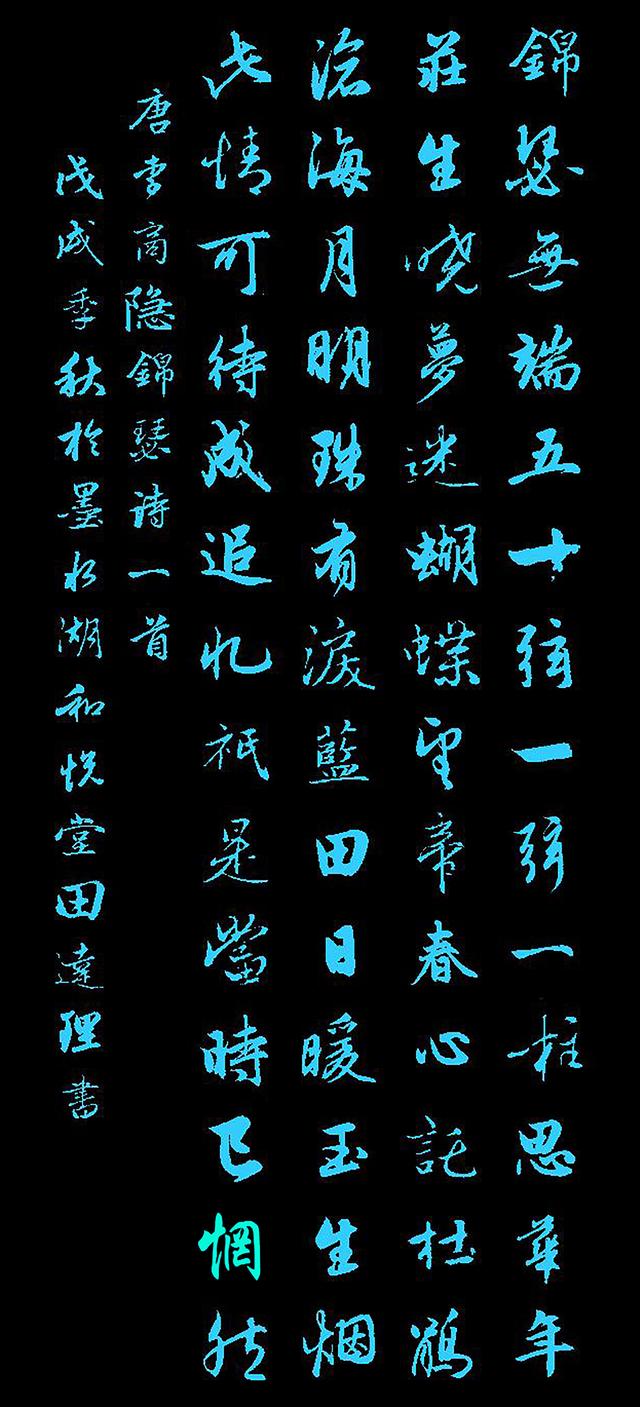 錦瑟無端五十弦一弦一柱思華年
莊生曉夢迷蝴蝶望帝春心託杜鵑
滄海月明珠有淚藍田日暖玉生烟
此情可待成追忆祇是當時已惘然
唐李商隐錦瑟诗一首
戊戌季秋於墨水湖和悦堂田達理書